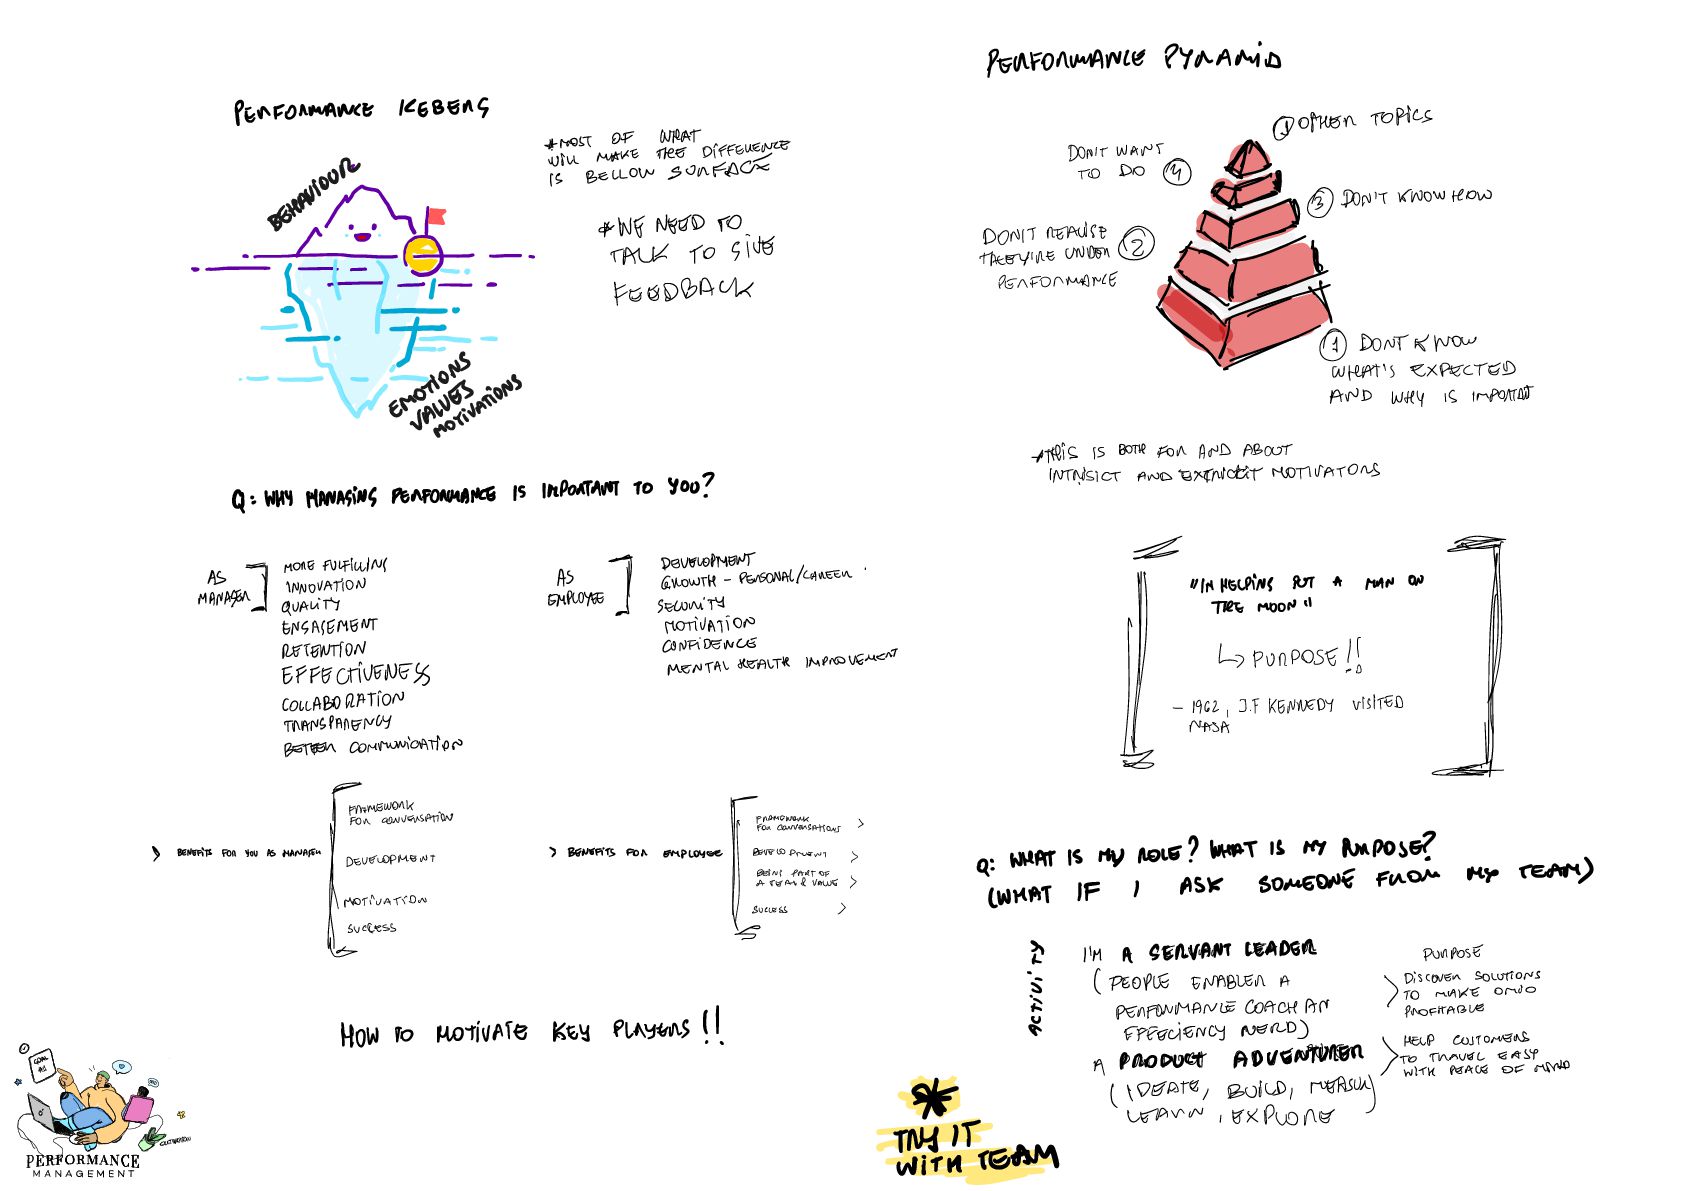 PERFORMANCE ICEBERG
BEHAVIOUR
EMOTIONS
VALUES
MOTIVATIONS
*MOST OF WHAT
WILL MAKE THE DIFFERENCE
IS BELLOW SURFACE
*WE NEED TO
TALK TO GIVE
FEEDBACK
Q: WHY MANAGING PERFORMANCE IS IMPORTANT TO YOU?
AS
MANAGER
MORE FULFILLING
INNOVATION
QUALITY
ENGAGEMENT
RETENTION
EFFECTIVENESS
COLLABORATION
TRANSPARENCY
BETTER COMMUNICATION
AS
EMPLOYEE
DEVELOPMENT
GROWTH - PERSONAL/CAREER
SECURITY
MOTIVATION
CONFIDENCE
MENTAL HEALTH IMPROVEMENT
> BENEFITS FOR YOU AS MANAGER
FRAMEWORK
FOR CONVERSATION
DEVELOPMENT
MOTIVATION
SUCCESS
> BENEFITS FOR EMPLOYEE
FRAMEWORK
FOR CONVERSATIONS >
DEVELOPMENT >
BEING PART OF
A TEAM & VALUE >
SUCCESS >
HOW TO MOTIVATE KEY PLAYERS!!
PERFORMANCE
MANAGEMENT
PERFORMANCE PYRAMID
OTHER TOPICS
DON'T WANT
TO DO 4
3 DON'T KNOW HOW
DON'T REALISE
THEY'RE UNDER 2
PERFORMANCE
1 DONT KNOW
WHAT'S EXPECTED
AND WHY IS IMPORTANT
*THIS IS BOTH FOR AND ABOUT
INTRISICT AND MOTIVATORS
"I'M HELPING PUT A MAN ON
THE MOON"
PURPOSE!!
- 1962, J.F KENNEDY VISITED
NASA
Q: WHAT IS MY ROLE? WHAT IS MY PURPOSE?
(WHAT IF I ASK SOMEONE FROM MY TEAM)
ACTIVITY
I'M A SERVANT LEADER
(PEOPLE ENABLER A
PERFORMANCE COACH AN
EFFECIENCY NERD)
A PRODUCT ADVENTURER
(IDEATE, BUILD, MEASURE)
LEARN, EXPLORE
PURPOSE
DISCOVER SOLUTIONS
TO MAKE OMIO
PROFITABLE
HELP CUSTOMERS
TO TRAVEL EASY
WITH PEACE OF MIND
* TRY IT
WITH TEAM